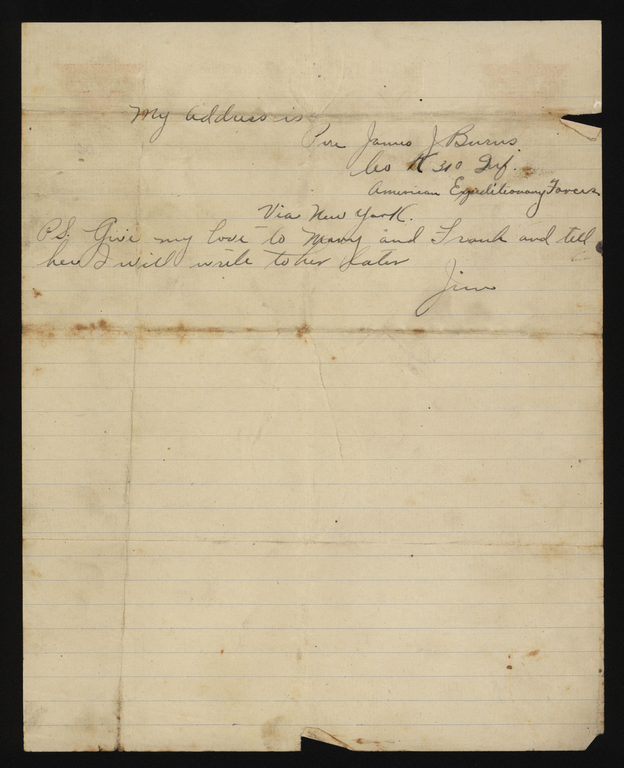 My address is
Pvre James J Burns.
Co K 310 Inf.
American Expeditionary Forces
Via New York.
P.S. Give my love to Mary and Frank and tell
her I will write to her later
Jim